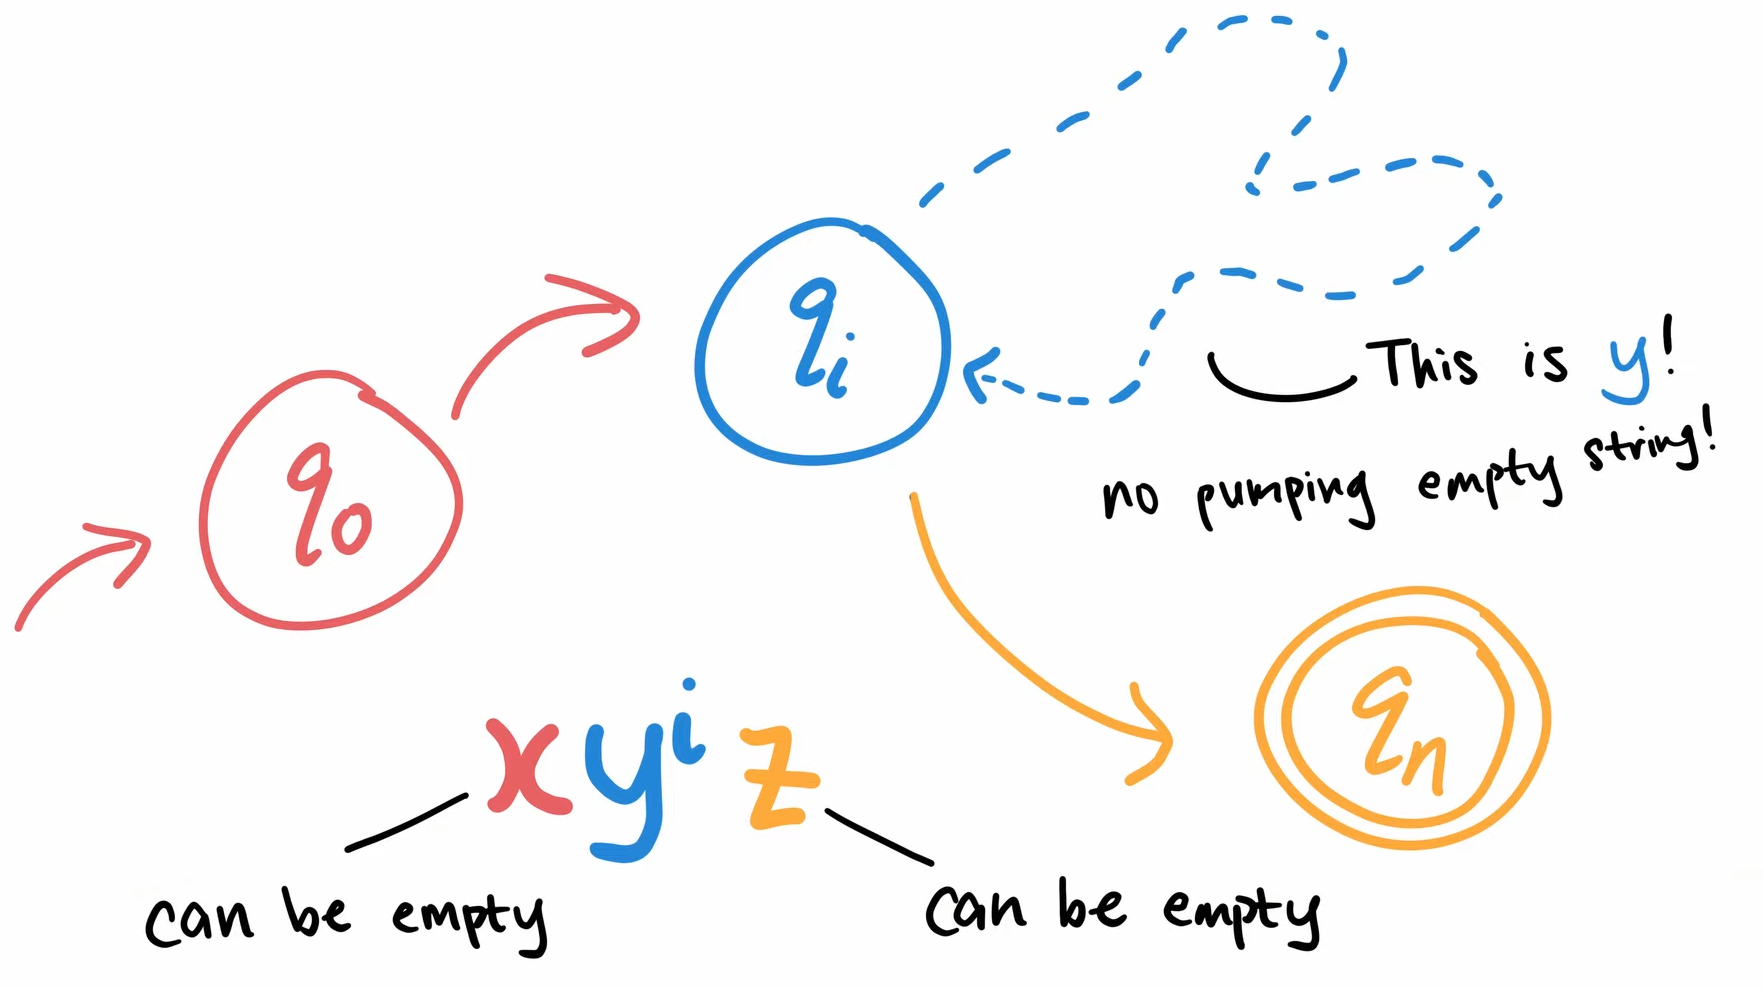 q₀
qᵢ
This is y!
no pumping empty string!
qₙ
xyⁱz
can be empty
can be empty